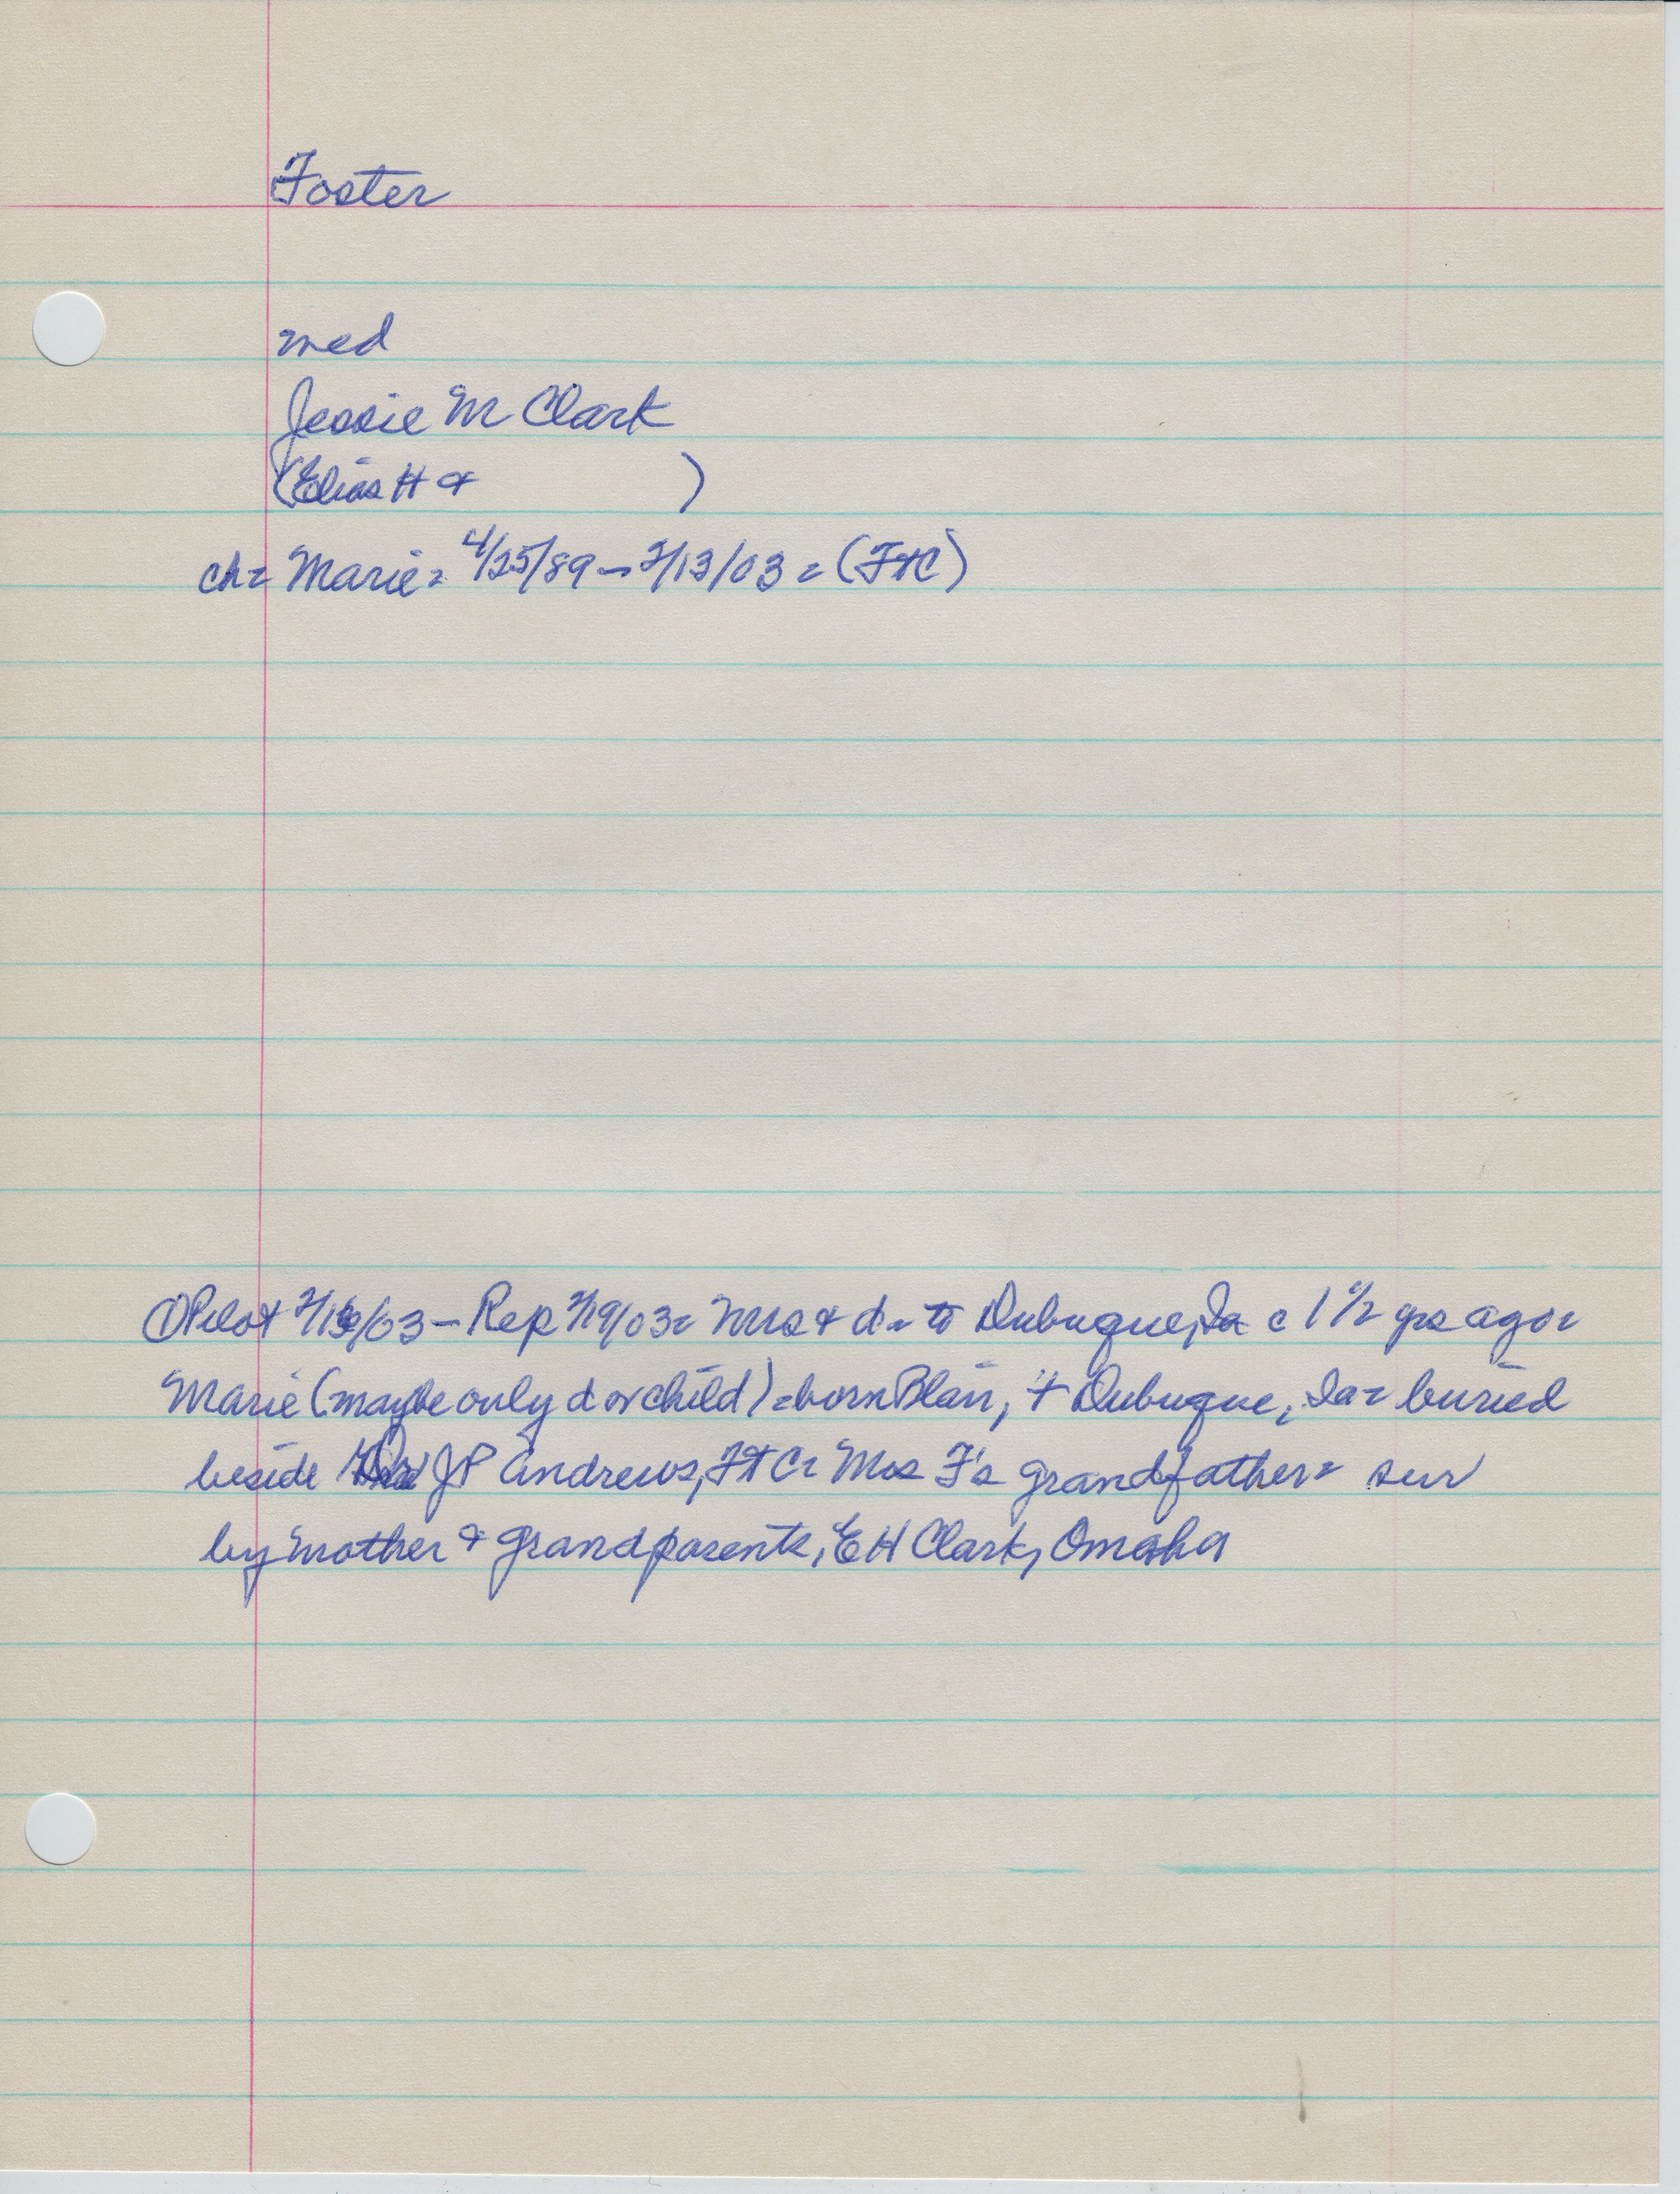 Foster
med
Jessie M Clark
(Elias H & )
ch= Marie= 4/25/89 - 2/13/03 = (FtC)
Pilot 2/18/03 - Rep 2/19/03= Mrs & d= to Dubuque, Ia c 1 1/2 yrs ago=
Marie (maybe only d or child) = born Blair, + Dubuque, Ia= buried
beside JP Andrews, Ft C= Mrs F's grandfather= sur
by mother & grandparents, E H Clark, Omaha